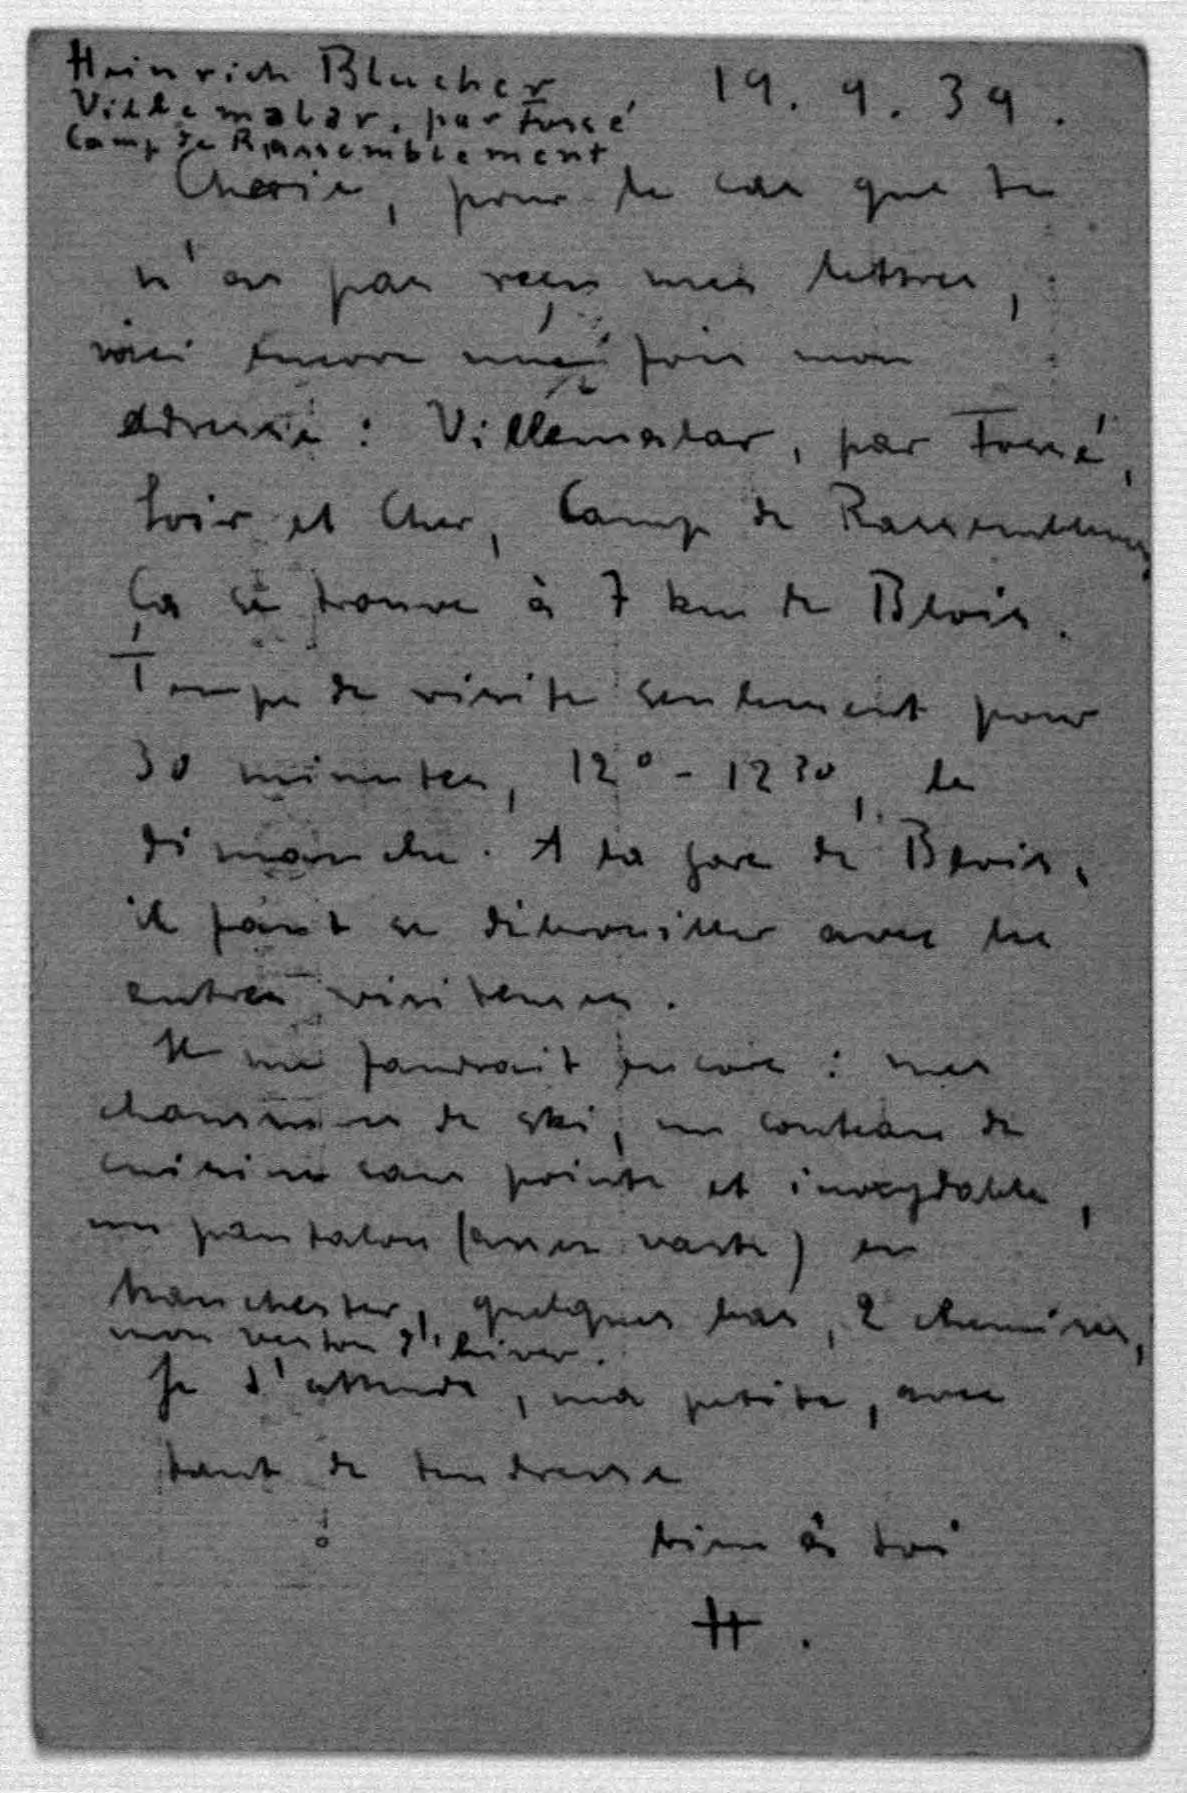 Heinrich Blucher
19. 9. 39.
Villemalar, par Fossé
Camp de Rassemblement
Cherie, pour le cas que tu
n'as pas reçu mes lettres,
voici encore une fois mon
adresse : Villemalar, par Fossé,
Loir et Cher, Camp de Rassemblement
Ça se trouve à 7 km de Blois.
Temps de visite seulement pour
30 minutes, 12⁰ - 12³⁰, le
dimanche. A la gare de Blois,
il faut se débrouiller avec les
autres visiteurs.
Il me faudrait encore : mes
chaussures de ski, un couteau de
cuisine sans pointe et inoxydable,
un pantalon (assez vaste) en
manchester, quelques bas, 2 chemises,
mon veston d'hiver.
Je t'attends, ma petite, avec
tant de tendresse
bien à toi
H.